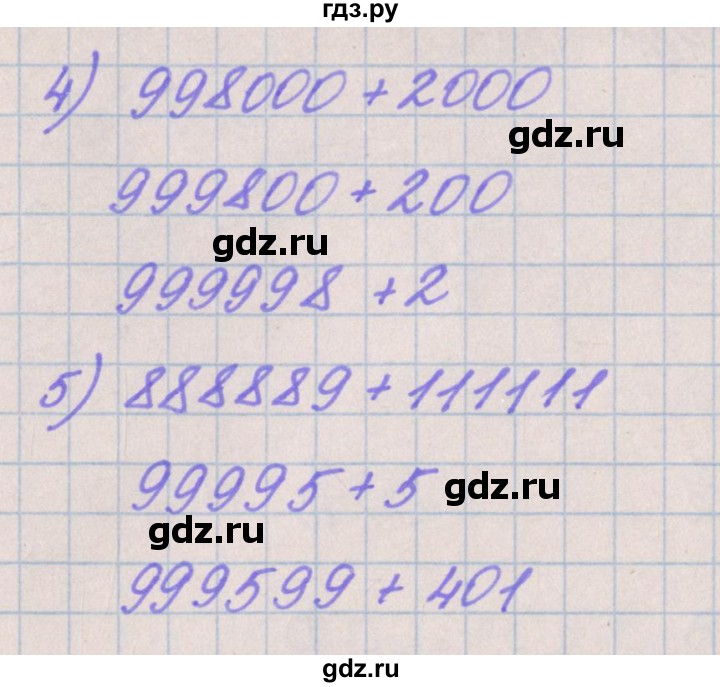 гдз.ру
4) 998000 + 2000
gdz.ru
999800 + 200
gdz.ru
999998 + 2
5) 888889 + 111111
99995 + 5
gdz.ru
gdz.ru
999599 + 401
gdz.ru